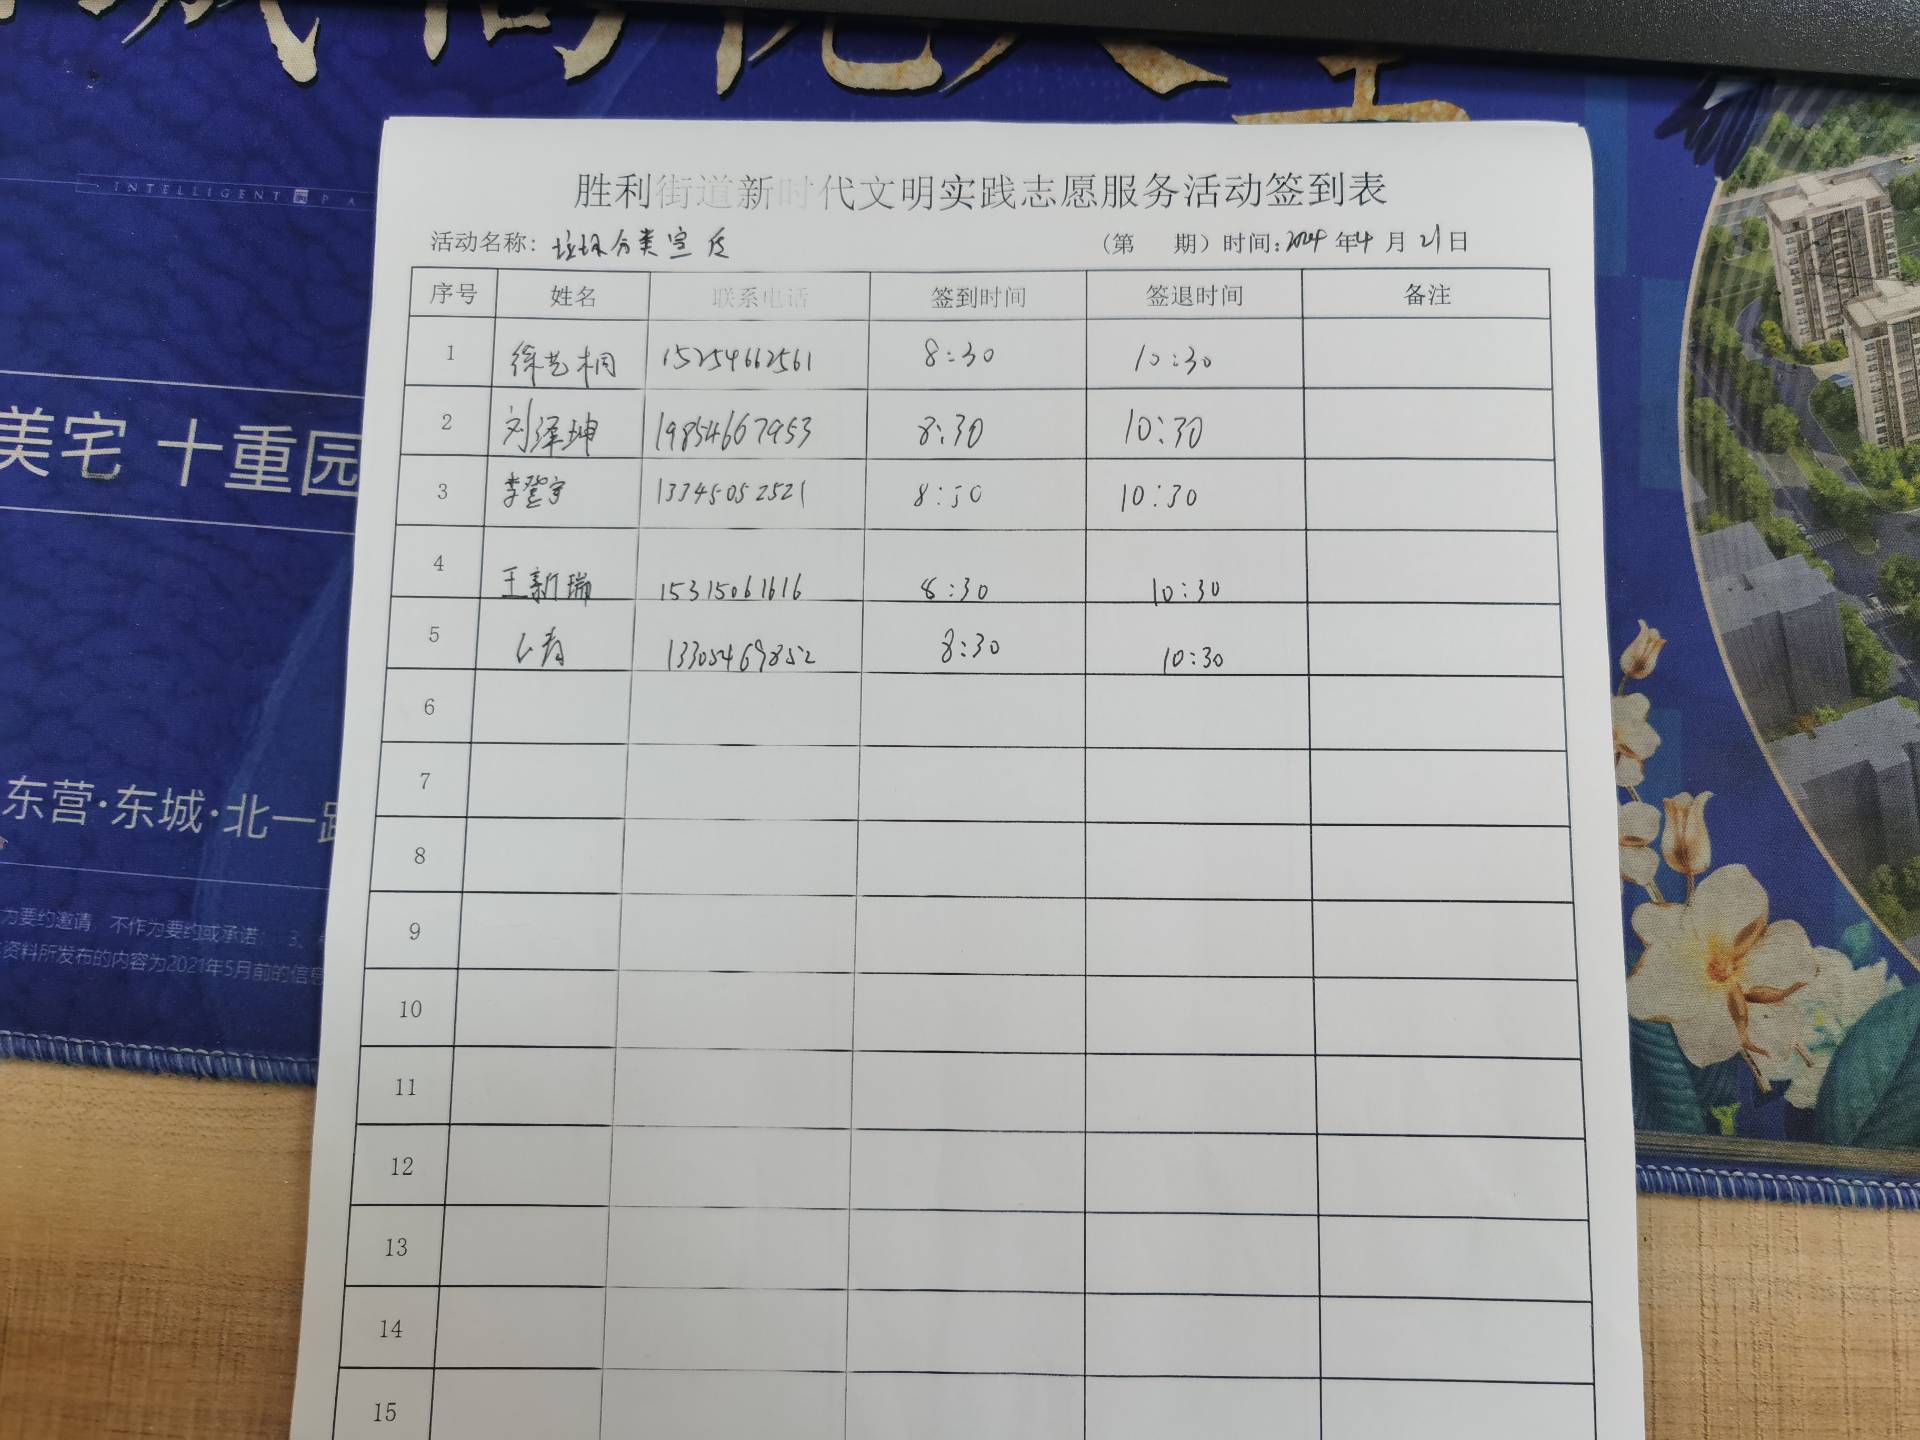 INTELLIGENT PA
美宅 十重园
东营·东城·北一路
为要约邀请，不作为要约或承诺； 3、
资料所发布的内容为2021年5月前的信息
胜利街道新时代文明实践志愿服务活动签到表
活动名称：垃圾分类宣传 （第 期）时间：2024年4月21日
序号 姓名 联系电话 签到时间 签退时间 备注
1 徐艺桐 15254662561 8:30 10:30
2 刘泽坤 19854667953 8:30 10:30
3 李登宇 13345052521 8:30 10:30
4 王新瑞 15315061616 8:30 10:30
5 13305469852 8:30 10:30
6
7
8
9
10
11
12
13
14
15